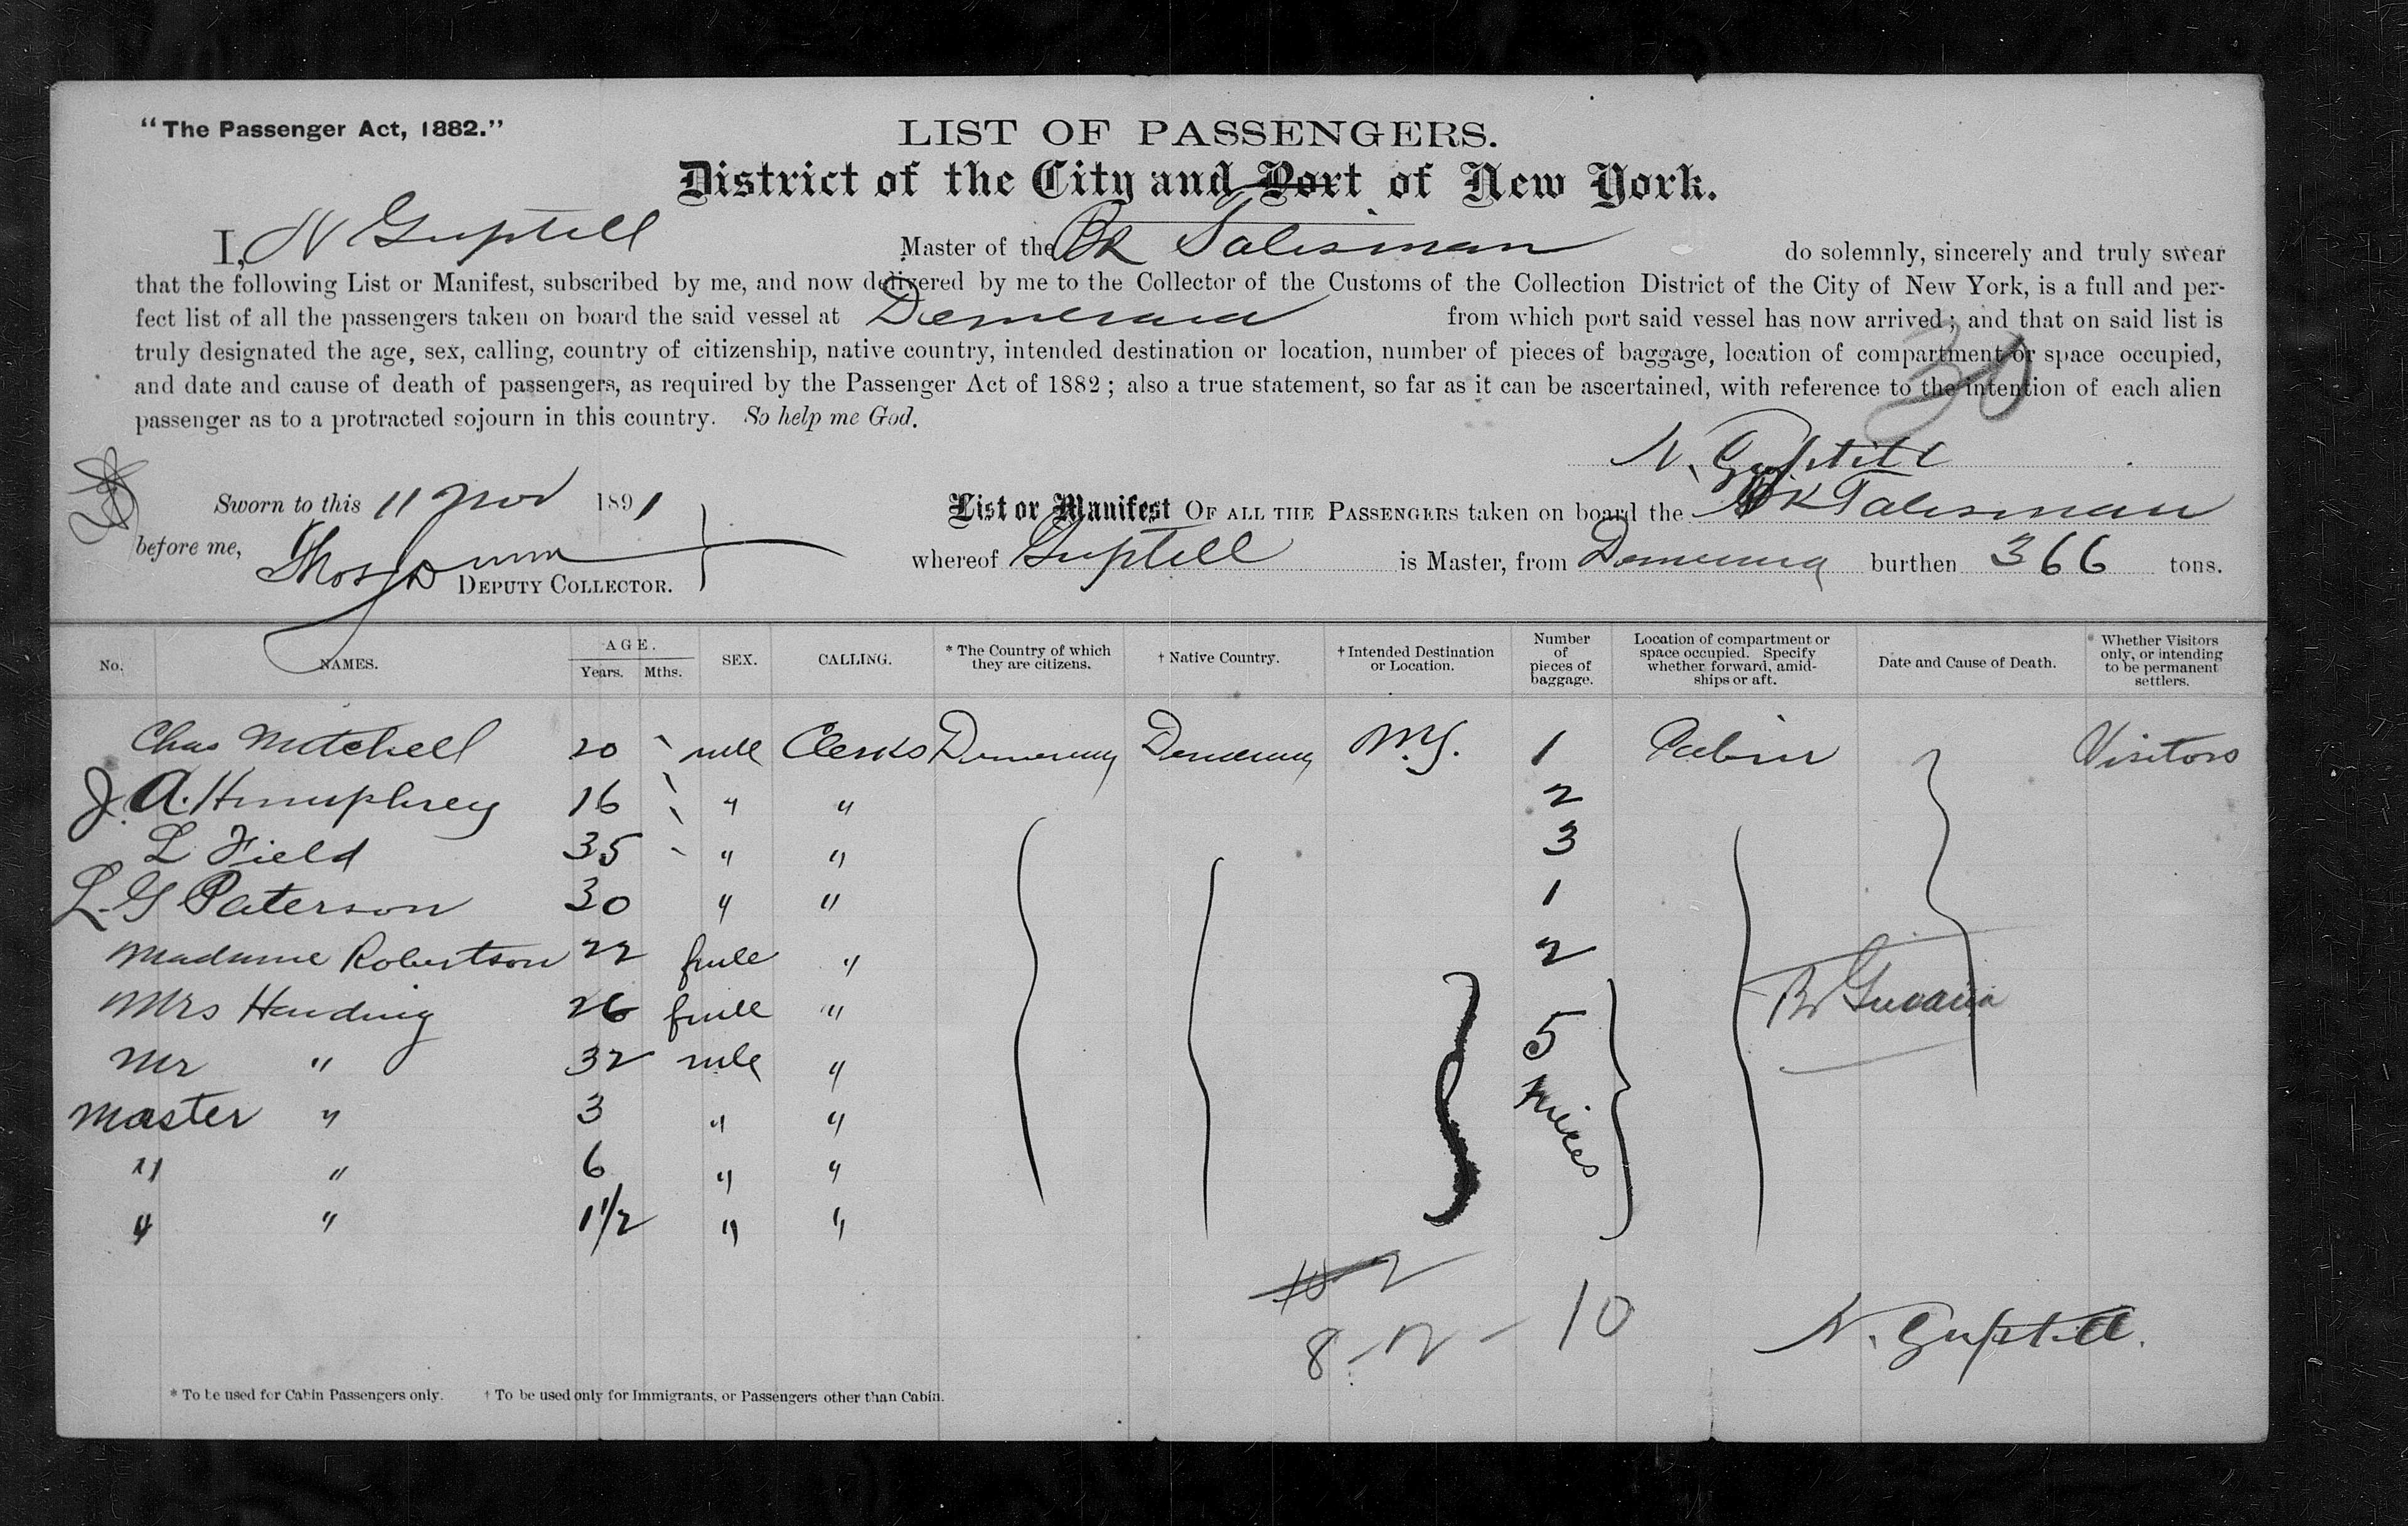 "The Passenger Act, 1882."
LIST OF PASSENGERS.
District of the City and Port of New York.
I, N Guptill Master of the Bk Talisman do solemnly, sincerely and truly swear
that the following List or Manifest, subscribed by me, and now delivered by me to the Collector of the Customs of the Collection District of the City of New York, is a full and per-
fect list of all the passengers taken on board the said vessel at Demerara from which port said vessel has now arrived; and that on said list is
truly designated the age, sex, calling, country of citizenship, native country, intended destination or location, number of pieces of baggage, location of compartment or space occupied,
and date and cause of death of passengers, as required by the Passenger Act of 1882; also a true statement, so far as it can be ascertained, with reference to the intention of each alien
passenger as to a protracted sojourn in this country. So help me God.
30
N. Guptill
Sworn to this 11 Nov 1891
before me,
DEPUTY COLLECTOR.
List or Manifest OF ALL THE PASSENGERS taken on board the Bk Talisman
whereof Guptill is Master, from Demerara burthen 366 tons.
No. NAMES. AGE. Years. Mths. SEX. CALLING. * The Country of which they are citizens. † Native Country. † Intended Destination or Location. Number of pieces of baggage. Location of compartment or space occupied. Specify whether forward, amid-ships or aft. Date and Cause of Death. Whether Visitors only, or intending to be permanent settlers.
Chas Mitchell 20 mle Clerks Demerara Demerara N.Y. 1 Cabin Visitors
J. A. Humphrey 16 " " 2
L Field 35 " " 3
L. G Paterson 30 " " 1
Madame Robertson 22 fmle " 2
Mrs Harding 26 fmle " 5
Mr " 32 mle "
Master " 3 " "
" " 6 " "
" " 1 1/2 " "
B Guiana
10 2
8 - 12 - 10
N. Guptill.
* To be used for Cabin Passengers only. † To be used only for Immigrants, or Passengers other than Cabin.